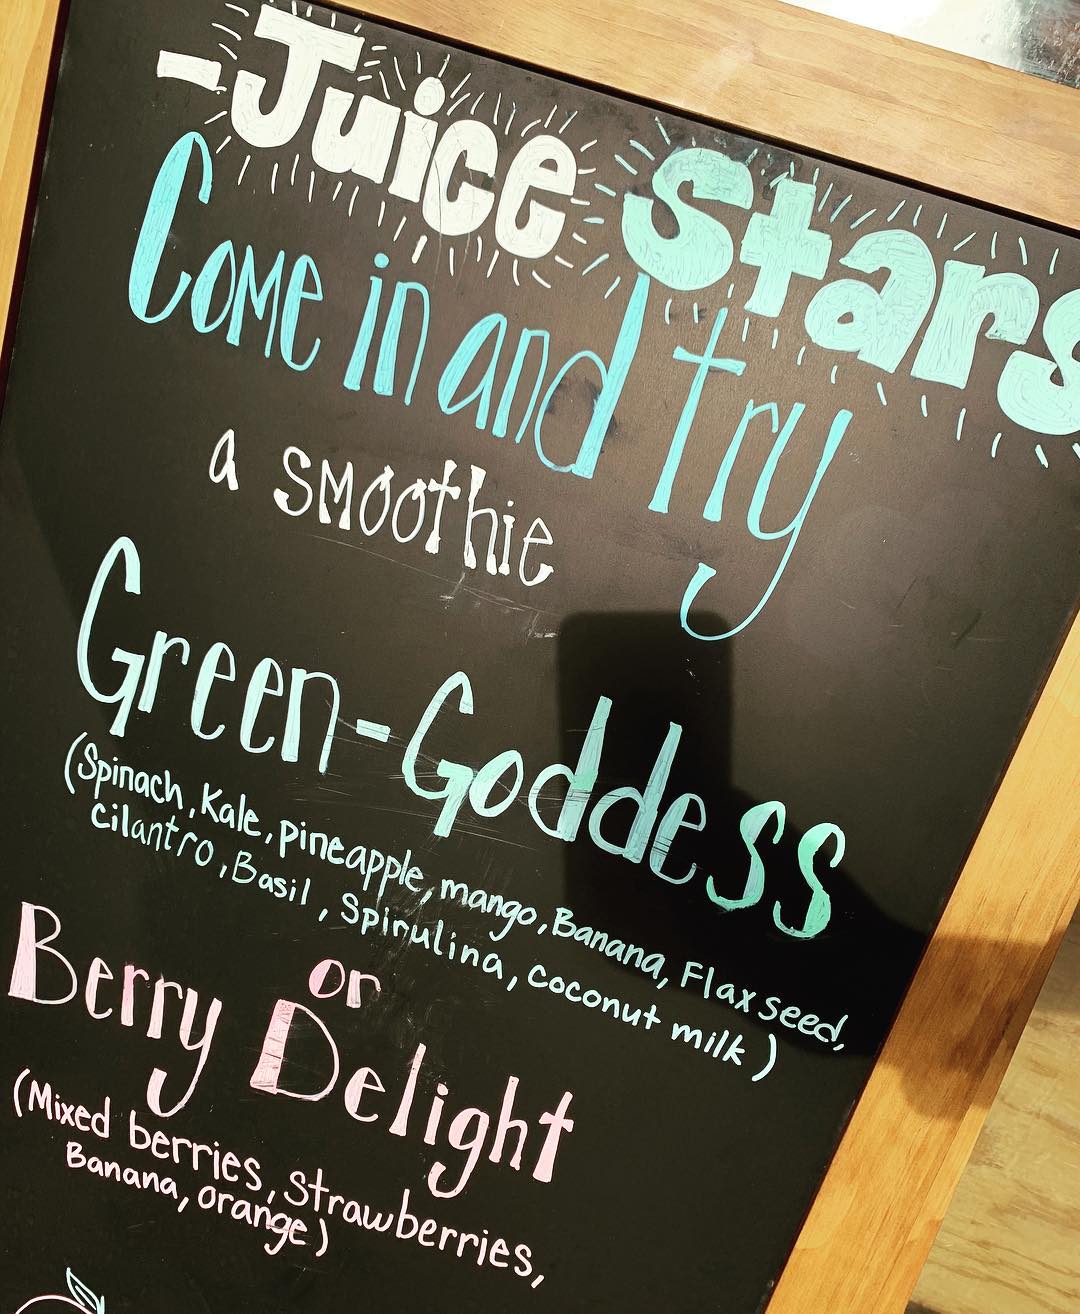 -Juice Stars
Come in and try
a smoothie
Green-Goddess
(Spinach, Kale, pineapple, mango, Banana, Flax seed,
cilantro, Basil, Spirulina, coconut milk)
or
Berry Delight
(Mixed berries, Strawberries,
Banana, orange)